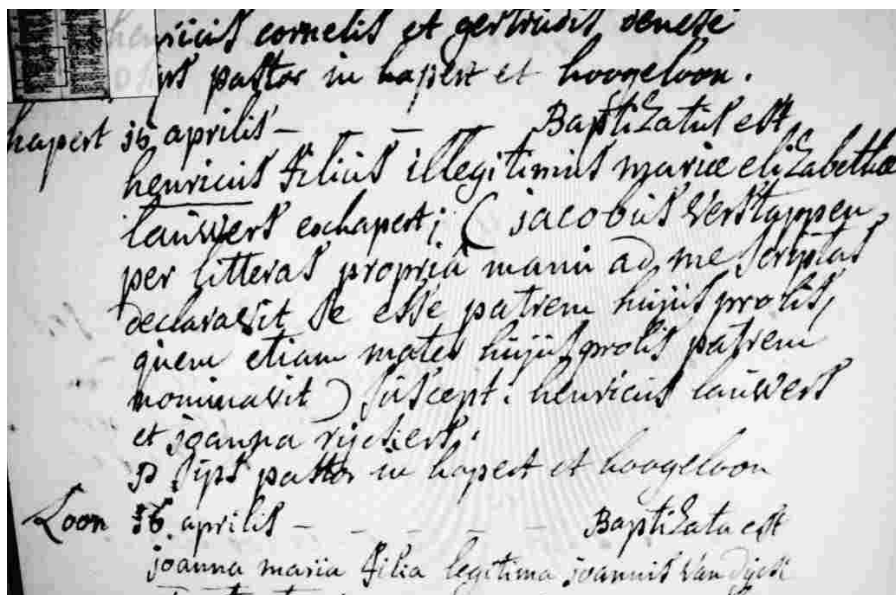 henricus cornelis et gertrudis denese
pastor in hapert et hoogeloon.
hapert 16 aprilis — — Baptizatus est
henricus filius illegitimus mariæ elizabethæ
lauwers exhapert; ( jacobus Verstappen
per litteras propria manu ad me scriptas
declaravit se esse patrem hujus prolis,
quem etiam mater hujus prolis patrem
nominavit ) suscept. henricus lauwers
et joanna
pastor in hapert et hoogeloon
Loon 16 aprilis — — — — Baptizata est
joanna maria filia legitima joannis Van dijck